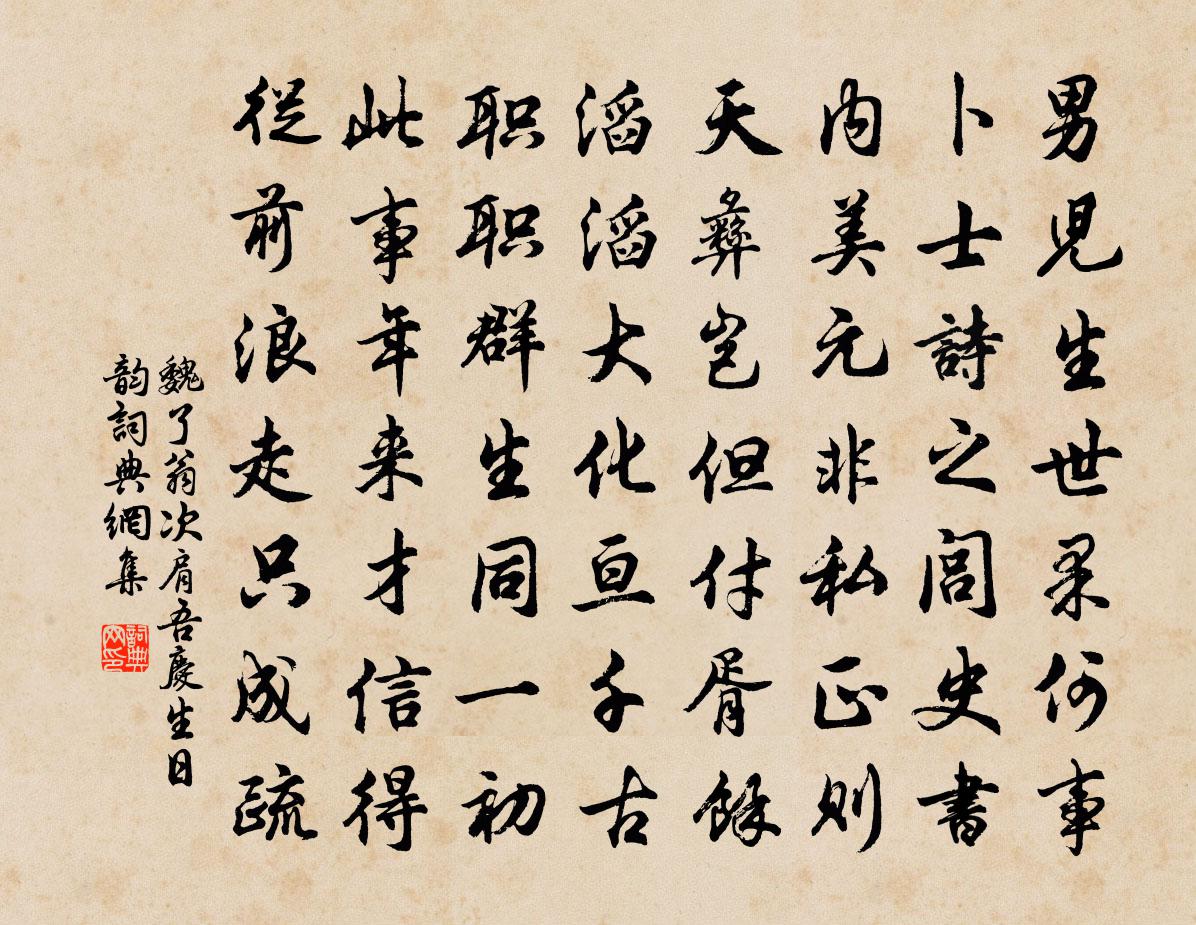 男児生世果何事
卜士詩之閭史書
内美元非私正则
天彝豈但付胥餘
滔滔大化亘千古
职职群生同一初
此事年来才信得
従前浪走只成疏
魏了翁次肩吾慶生日
韵詞典網集
詞典网印